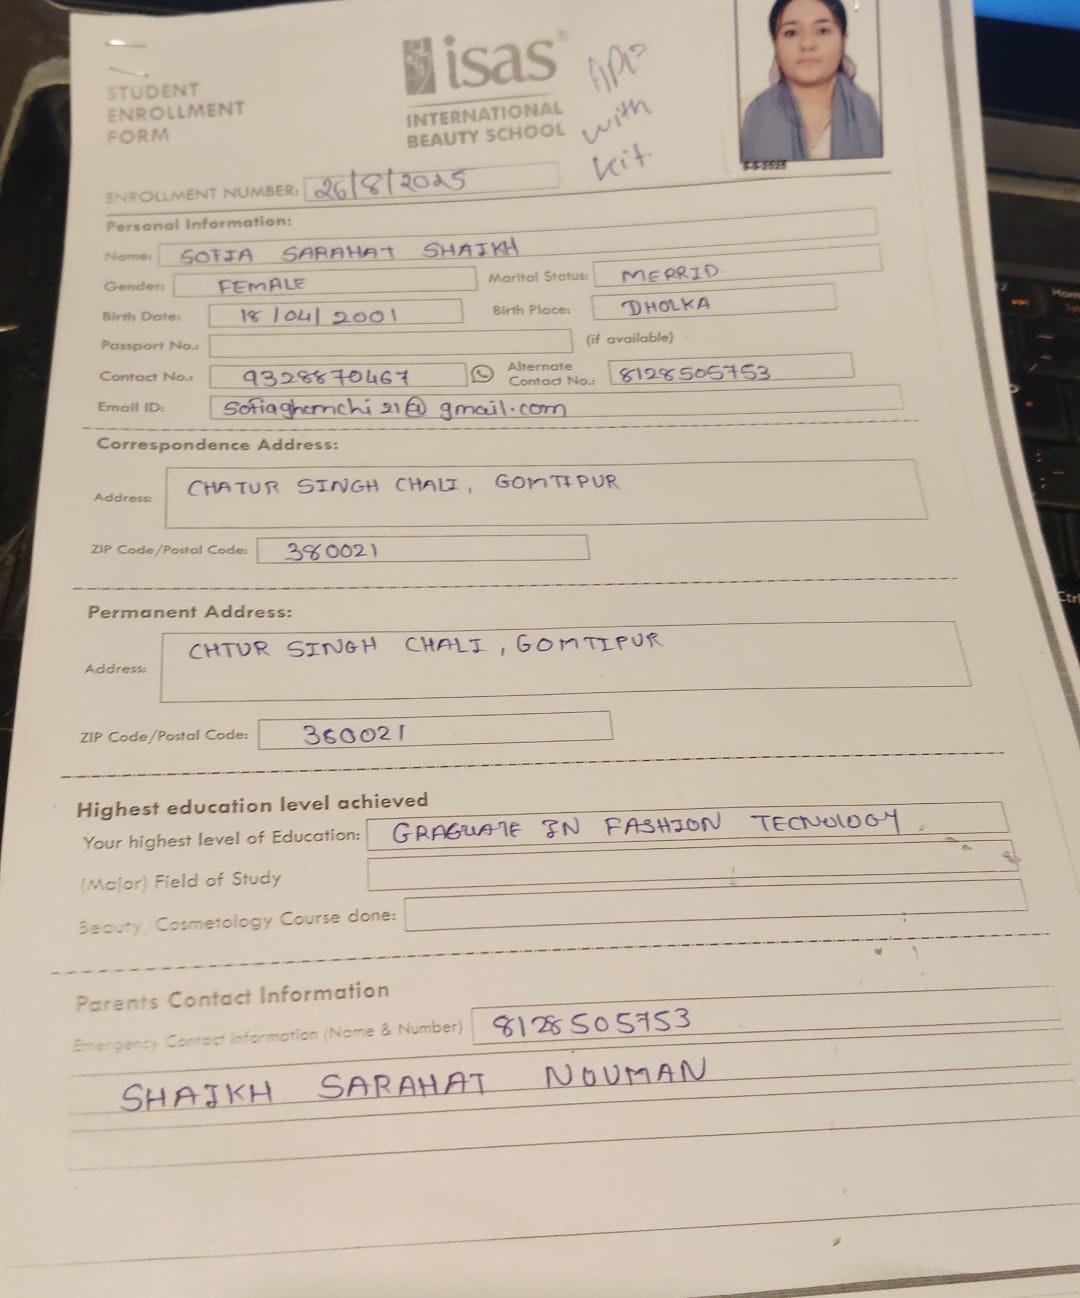 isas®
INTERNATIONAL
BEAUTY SCHOOL
STUDENT
ENROLLMENT
FORM
with
kit.
ENROLLMENT NUMBER: 26/8/2025
Personal Information:
Name: SOFIA SARAHAT SHAIKH
Gender: FEMALE Marital Status: MERRID
Birth Date: 18/04/2001 Birth Place: DHOLKA
Passport No.: (if available)
Contact No.: 9328870467 Alternate Contact No.: 8128505753
Email ID: sofiaghamchi21@gmail.com
Correspondence Address:
Address: CHATUR SINGH CHALI, GOMTIPUR
ZIP Code/Postal Code: 380021
Permanent Address:
Address: CHTUR SINGH CHALI, GOMTIPUR
ZIP Code/Postal Code: 380021
Highest education level achieved
Your highest level of Education: GRAGUATE IN FASHION TECNOLOGY.
(Major) Field of Study
Beauty/Cosmetology Course done:
Parents Contact Information
Emergency Contact Information (Name & Number) 8128505753
SHAIKH SARAHAT NOUMAN
Ctrl